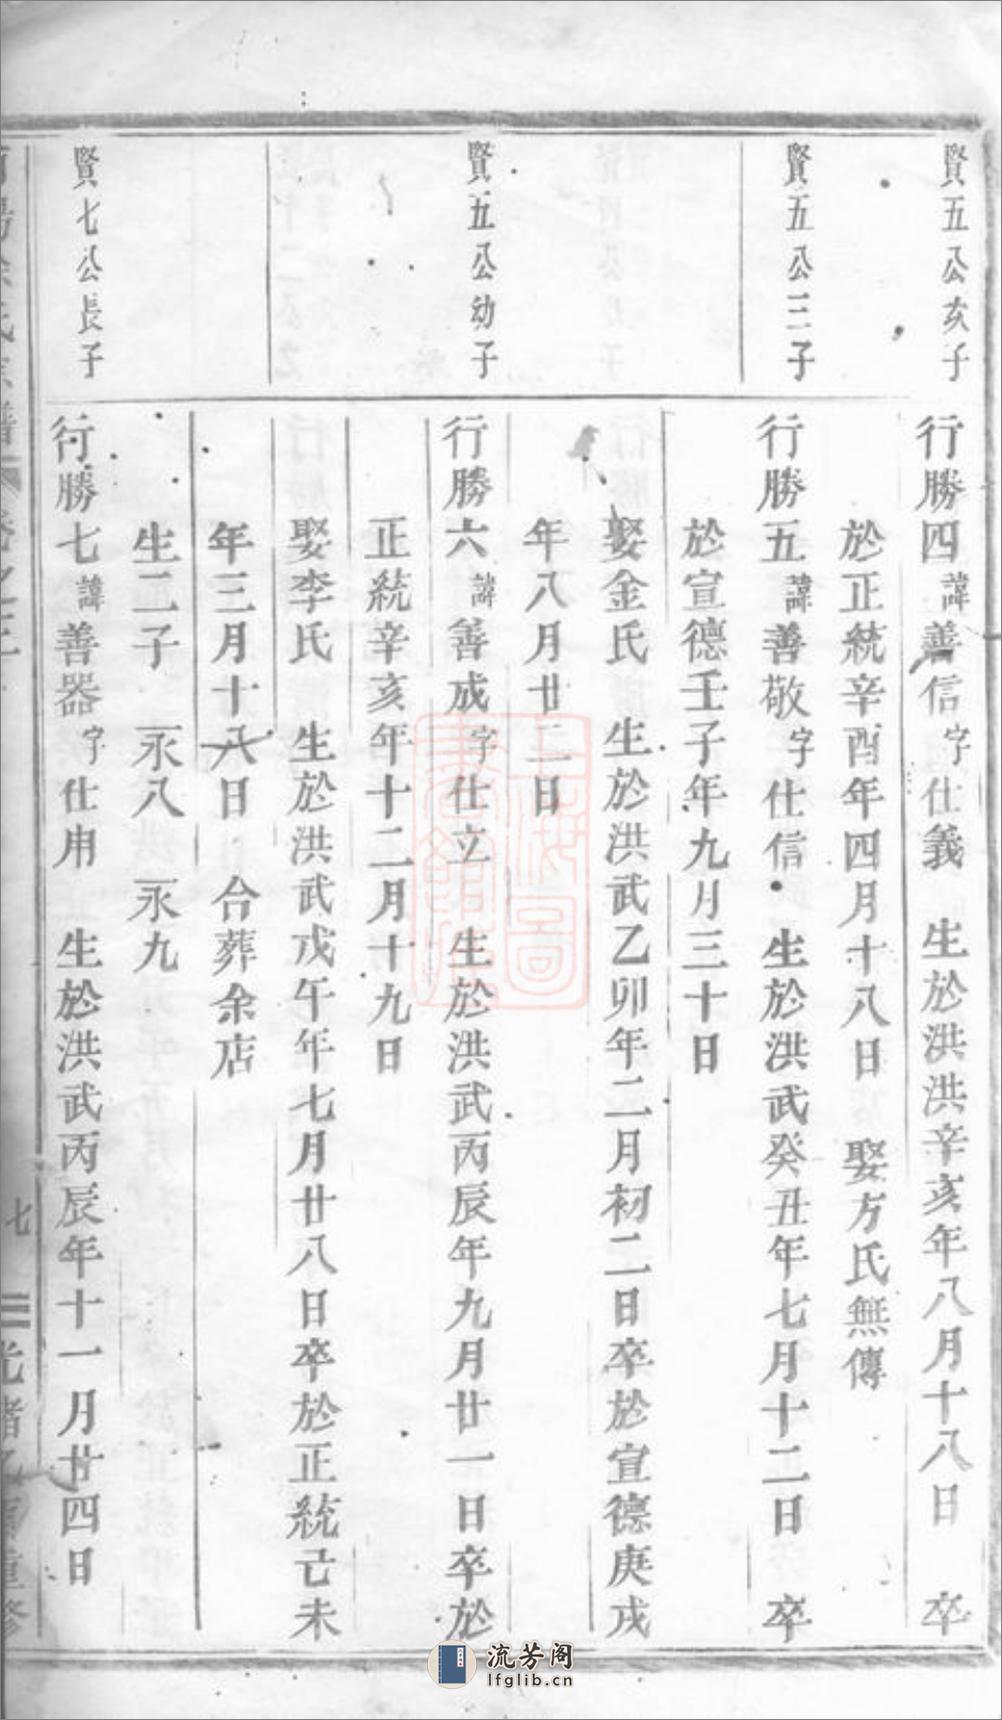 賢五公次子
行勝四諱善信字仕義 生於洪洪辛亥年八月十八日 卒
於正統辛酉年四月十八日 娶方氏無傳
賢五公三子
行勝五諱善敬字仕信 生於洪武癸丑年七月十二日 卒
於宣德壬子年九月三十日
娶金氏 生於洪武乙卯年二月初二日卒於宣德庚戌
年八月廿二日
賢五公幼子
行勝六諱善成字仕立 生於洪武丙辰年九月廿一日卒於
正統辛亥年十二月十九日
娶李氏 生於洪武戊午年七月廿八日卒於正統己未
年三月十八日 合葬余店
生二子 永八 永九
賢七公長子
行勝七諱善器字仕用 生於洪武丙辰年十一月廿四日
氏宗譜 卷之三 七 光緒乙 重修
上海圖書館藏
流芳阁
lfglib.cn